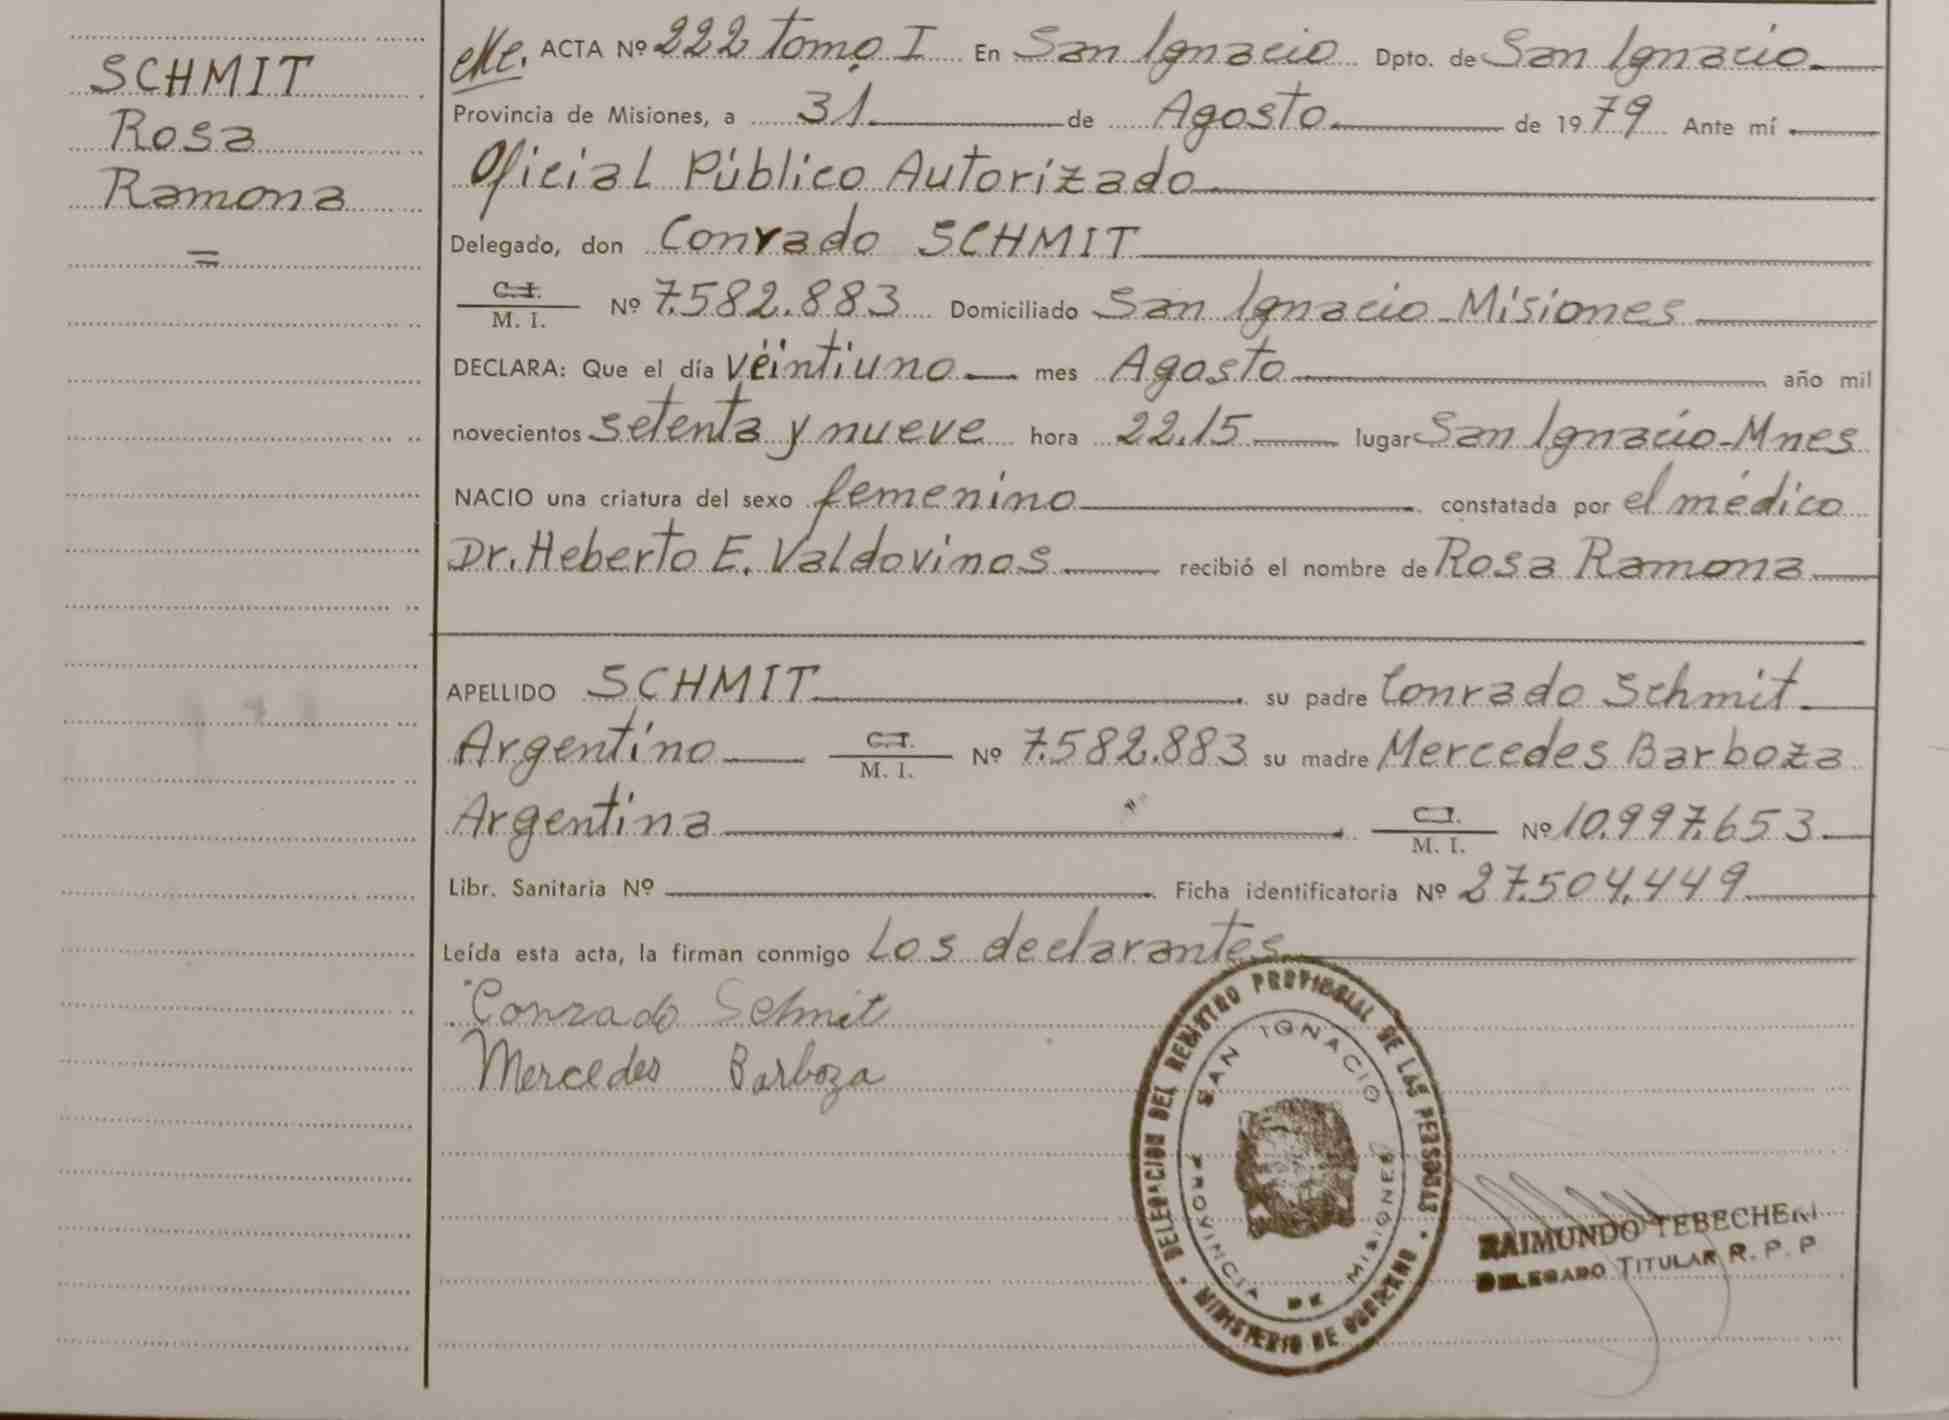 SCHMIT
Rosa
Ramona
=
ACTA Nº 222 tomo I En San Ignacio Dpto. de San Ignacio
Provincia de Misiones, a 31 de Agosto de 1979 Ante mí
Oficial Público Autorizado
Delegado, don Conrado SCHMIT
C.I.
M. I. Nº 7.582.883 Domiciliado San Ignacio - Misiones
DECLARA: Que el día veintiuno mes Agosto año mil
novecientos setenta y nueve hora 22.15 lugar San Ignacio - Mnes
NACIO una criatura del sexo femenino constatada por el médico
Dr. Heberto E. Valdovinos recibió el nombre de Rosa Ramona
APELLIDO SCHMIT su padre Conrado Schmit
Argentino C.I.
M. I. Nº 7.582.883 su madre Mercedes Barboza
Argentina C.I.
M. I. Nº 10.997.653
Libr. Sanitaria Nº Ficha identificatoria Nº 27.504.449
Leída esta acta, la firman conmigo Los declarantes
Conrado Schmit
Mercedes Barboza
DELEGACION DEL REGISTRO PROVINCIAL DE LAS PERSONAS
MINISTERIO DE GOBIERNO
SAN IGNACIO
PROVINCIA DE MISIONES
RAIMUNDO
DELEGADO TITULAR R. P. P